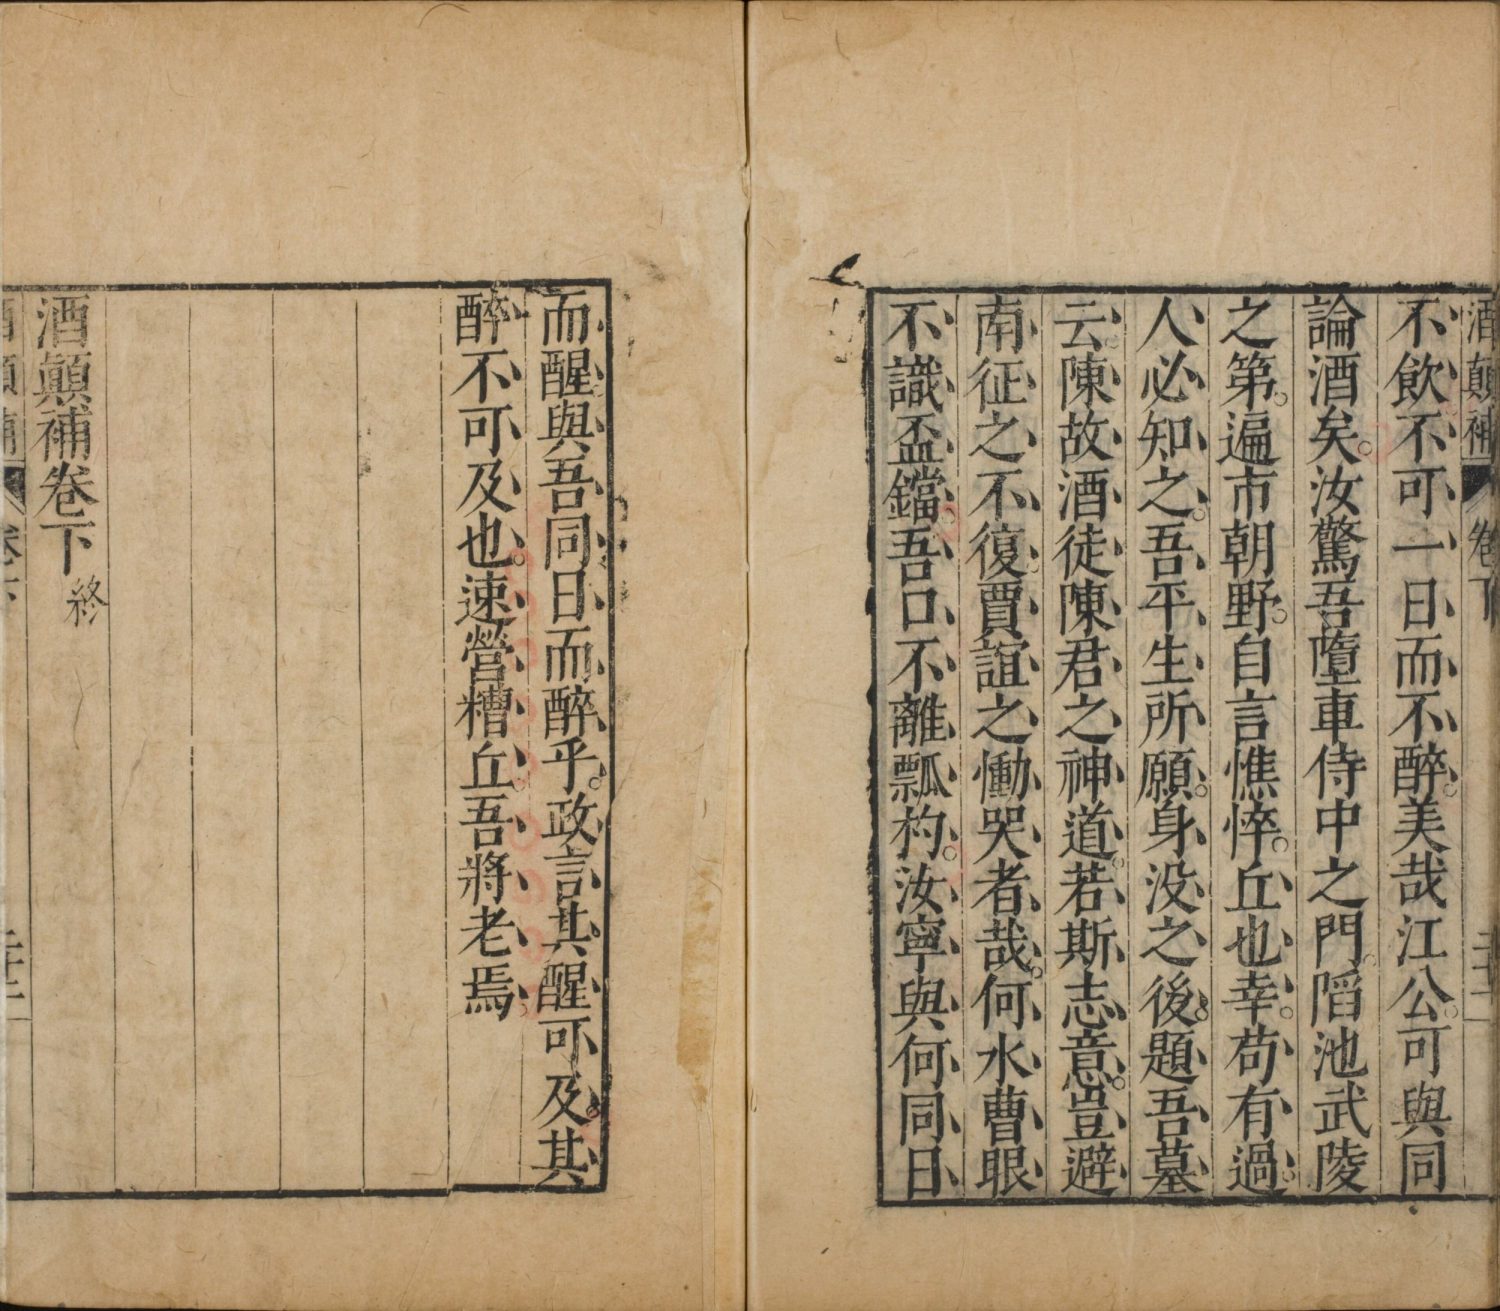 酒顛補 卷下 二十二
不飲不可一日而不醉。美哉江公。可與同
論酒矣。汝驚吾墮車侍中之門。陷池武陵
之第。遍市朝野。自言憔悴。丘也幸。苟有過
人必知之。吾平生所願。身没之後。題吾墓
云。陳故酒徒陳君之神道。若斯志意。豈避
南征之不復。賈誼之慟哭者哉。何水曹眼
不識盃鐺。吾口不離瓢杓。汝寧與何同日
而醒。與吾同日而醉乎。政言其醒可及。其
醉不可及也。速營糟丘。吾將老焉。
酒顛補卷下 終
酒顛補